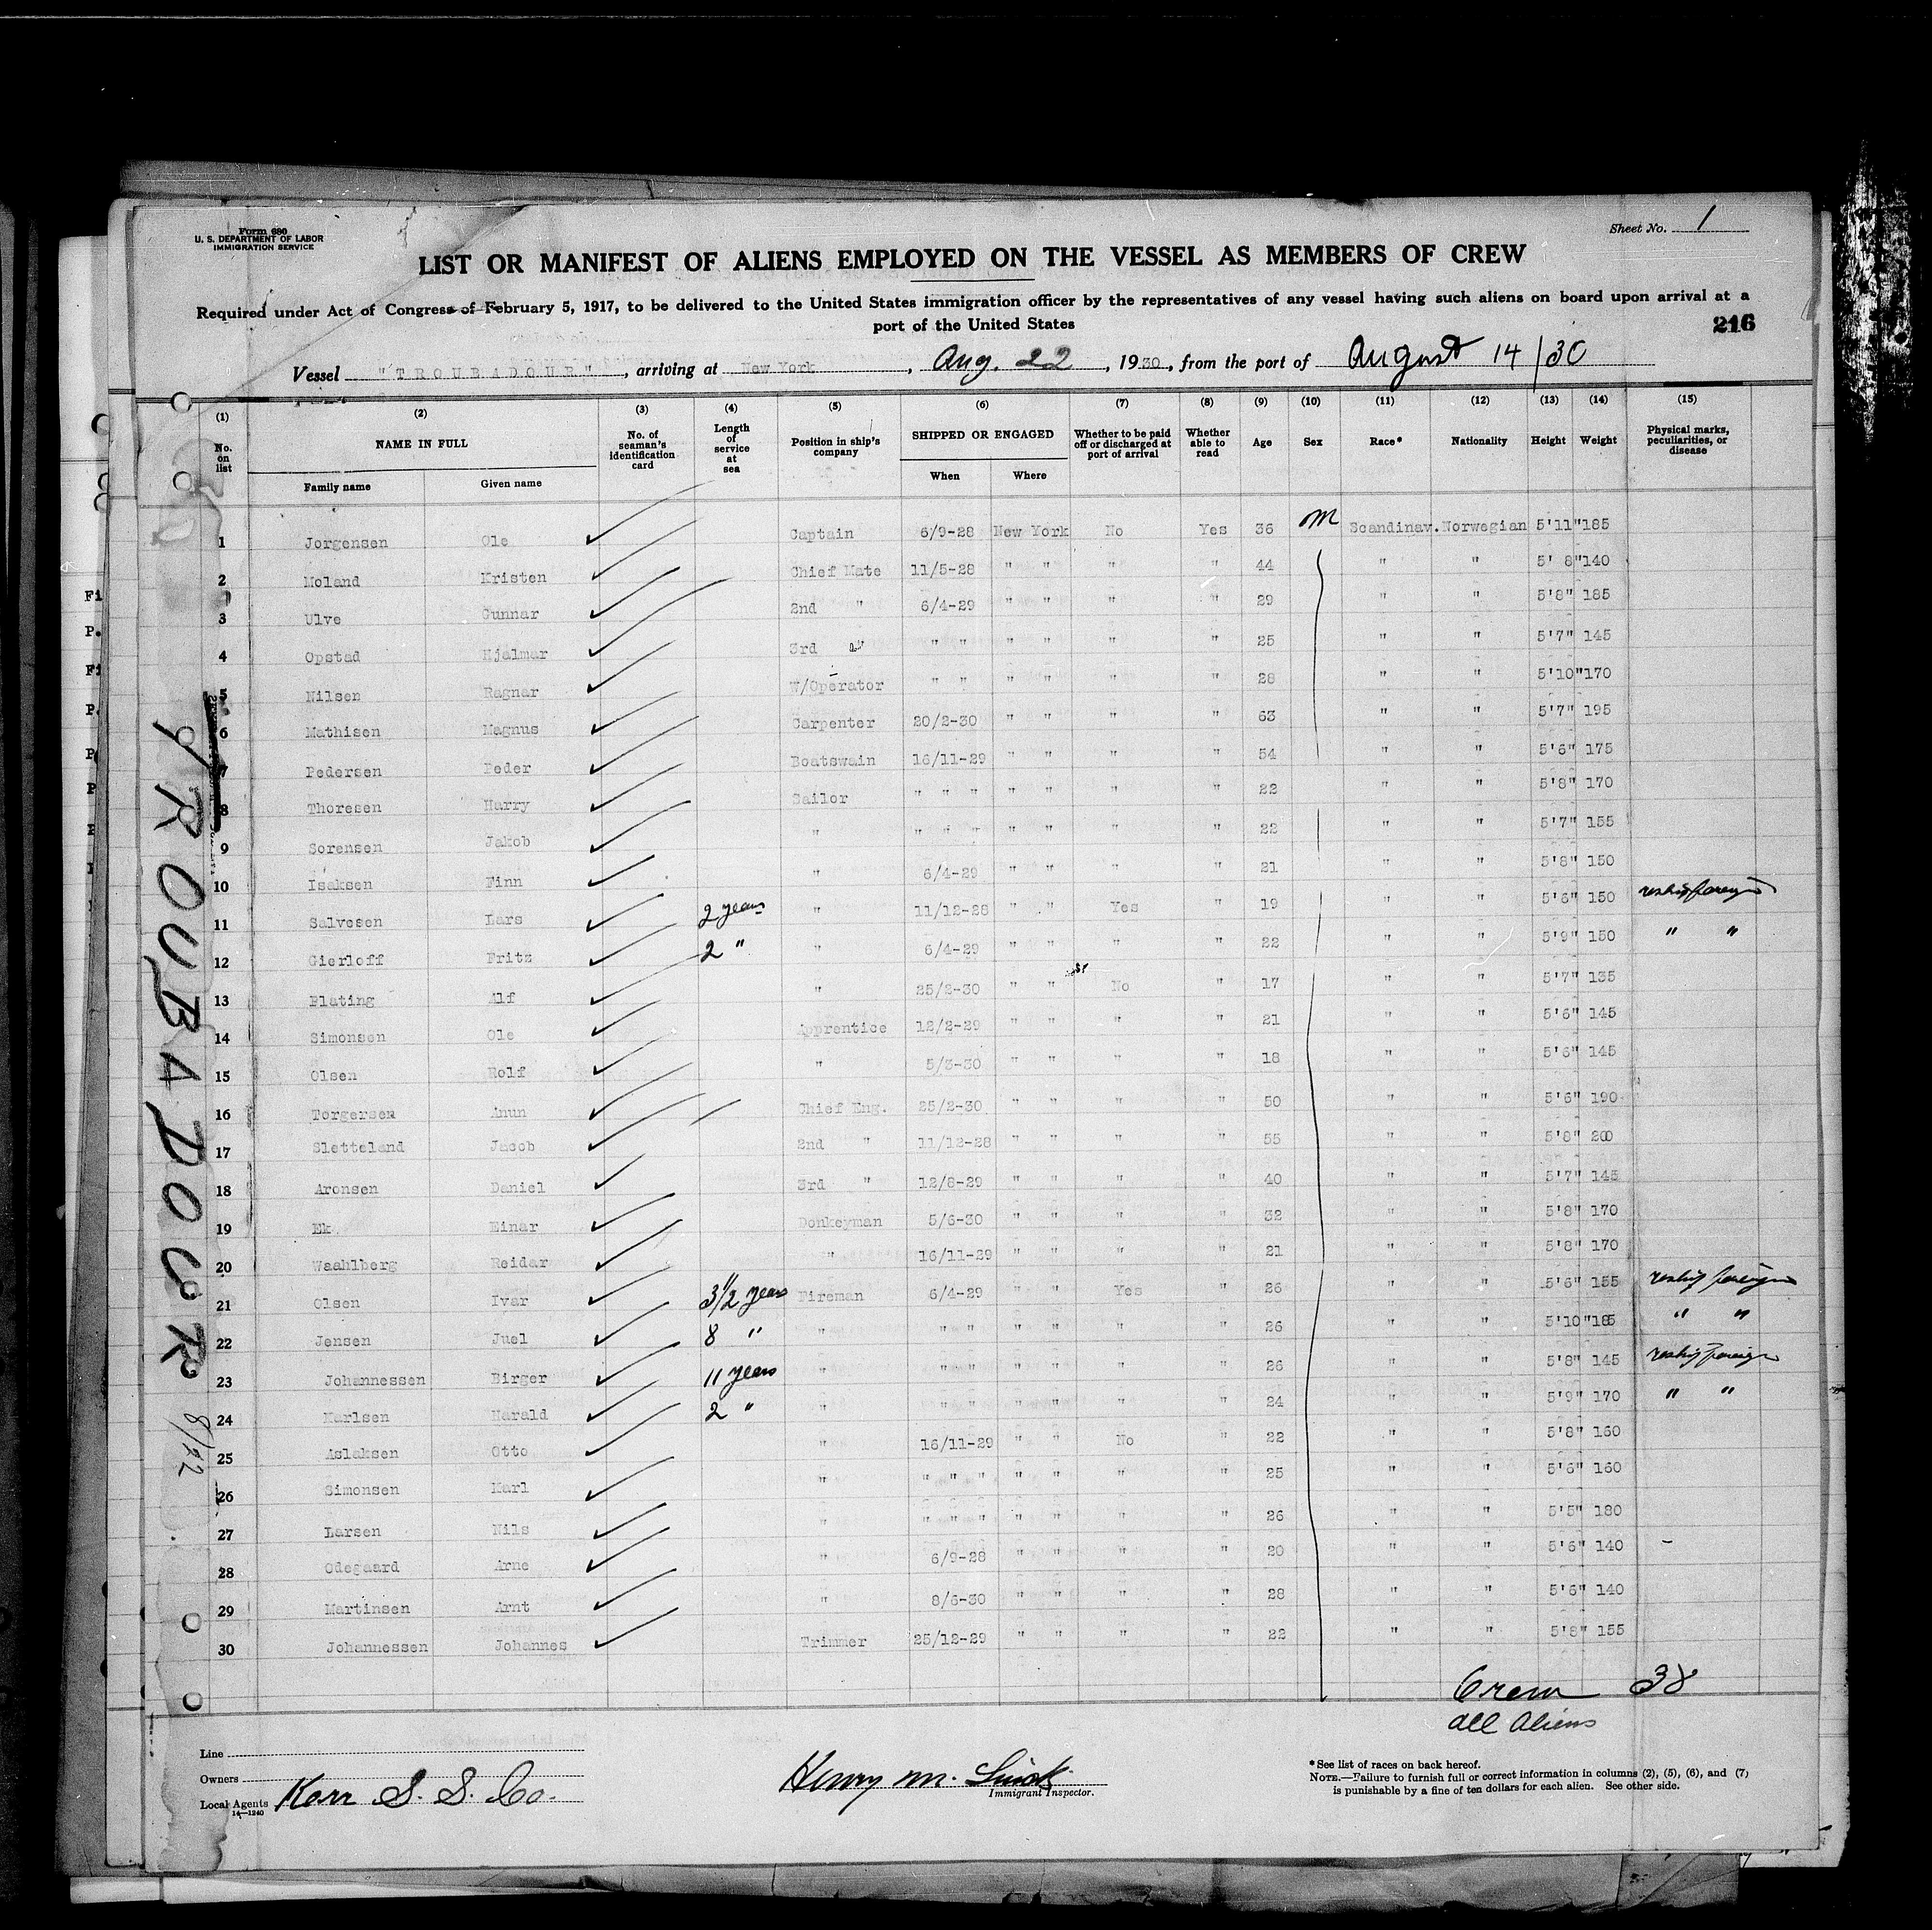 Form 680
U. S. DEPARTMENT OF LABOR
IMMIGRATION SERVICE
Sheet No. 1
LIST OR MANIFEST OF ALIENS EMPLOYED ON THE VESSEL AS MEMBERS OF CREW
Required under Act of Congress of February 5, 1917, to be delivered to the United States immigration officer by the representatives of any vessel having such aliens on board upon arrival at a
port of the United States
216
Vessel "TROUBADOUR", arriving at New York, Aug. 22, 1930, from the port of August 14/30
(1) (2) (3) (4) (5) (6) (7) (8) (9) (10) (11) (12) (13) (14) (15)
No. on list NAME IN FULL No. of seaman's identification card Length of service at sea Position in ship's company SHIPPED OR ENGAGED Whether to be paid off or discharged at port of arrival Whether able to read Age Sex Race* Nationality Height Weight Physical marks, peculiarities, or disease
Family name Given name When Where
1 Jorgensen Ole Captain 6/9-28 New York No Yes 36 M Scandinav. Norwegian 5'11" 185
2 Moland Kristen Chief Mate 11/5-28 " " " " 44 " " 5' 8" 140
3 Ulve Gunnar 2nd " 6/4-29 " " " " 29 " " 5'8" 185
4 Opstad Hjalmar 3rd " " " " " " " 25 " " 5'7" 145
5 Nilsen Ragnar W/Operator " " " " " " 28 " " 5'10" 170
6 Mathisen Magnus Carpenter 20/2-30 " " " " 63 " " 5'7" 195
7 Pedersen Peder Boatswain 16/11-29 " " " " 54 " " 5'6" 175
8 Thoresen Harry Sailor " " " " " " " 22 " " 5'8" 170
9 Sorensen Jakob " " " " " " " " 22 " " 5'7" 155
10 Isaksen Finn " 6/4-29 " " " " 21 " " 5'8" 150
11 Salvesen Lars 2 years " 11/12-28 " " Yes " 19 " " 5'6" 150 reship foreign
12 Gierloff Fritz 2 " " 6/4-29 " " " " 22 " " 5'9" 150 " "
13 Flating Alf " 25/2-30 " " No " 17 " " 5'7" 135
14 Simonsen Ole Apprentice 12/2-29 " " " " 21 " " 5'6" 145
15 Olsen Rolf " 5/3-30 " " " " 18 " " 5'6" 145
16 Torgersen Anun Chief Eng. 25/2-30 " " " " 50 " " 5'6" 190
17 Sletteland Jacob 2nd " 11/12-28 " " " " 55 " " 5'8" 200
18 Aronsen Daniel 3rd " 12/8-29 " " " " 40 " " 5'7" 145
19 Ek Einar Donkeyman 5/6-30 " " " " 32 " " 5'8" 170
20 Waahlberg Reidar " 16/11-29 " " " " 21 " " 5'8" 170
21 Olsen Ivar 3 1/2 years Fireman 6/4-29 " " Yes " 26 " " 5'6" 155 reship foreign
22 Jensen Juel 8 " " " " " " " " 26 " " 5'10" 185 " "
23 Johannessen Birger 11 years " " " " " " " " 26 " " 5'8" 145 reship foreign
24 Karlsen Harald 2 " " " " " " " " " 24 " " 5'9" 170 " "
25 Aslaksen Otto " 16/11-29 " " No " 22 " " 5'8" 160
26 Simonsen Karl " " " " " " " " 25 " " 5'6" 160
27 Larsen Nils " " " " " " " " 26 " " 5'5" 180
28 Odegaard Arne " 6/9-28 " " " " 20 " " 5'6" 140 -
29 Martinsen Arnt " 8/6-30 " " " " 28 " " 5'6" 140
30 Johannessen Johannes Trimmer 25/12-29 " " " " 22 " " 5'8" 155
TROUBADOUR 8/22
Crew 38
all Aliens
Line
Owners
Local Agents Kerr S. S. Co.
14-1240
Henry M.
Immigrant Inspector.
*See list of races on back hereof.
NOTE.—Failure to furnish full or correct information in columns (2), (5), (6), and (7)
is punishable by a fine of ten dollars for each alien. See other side.